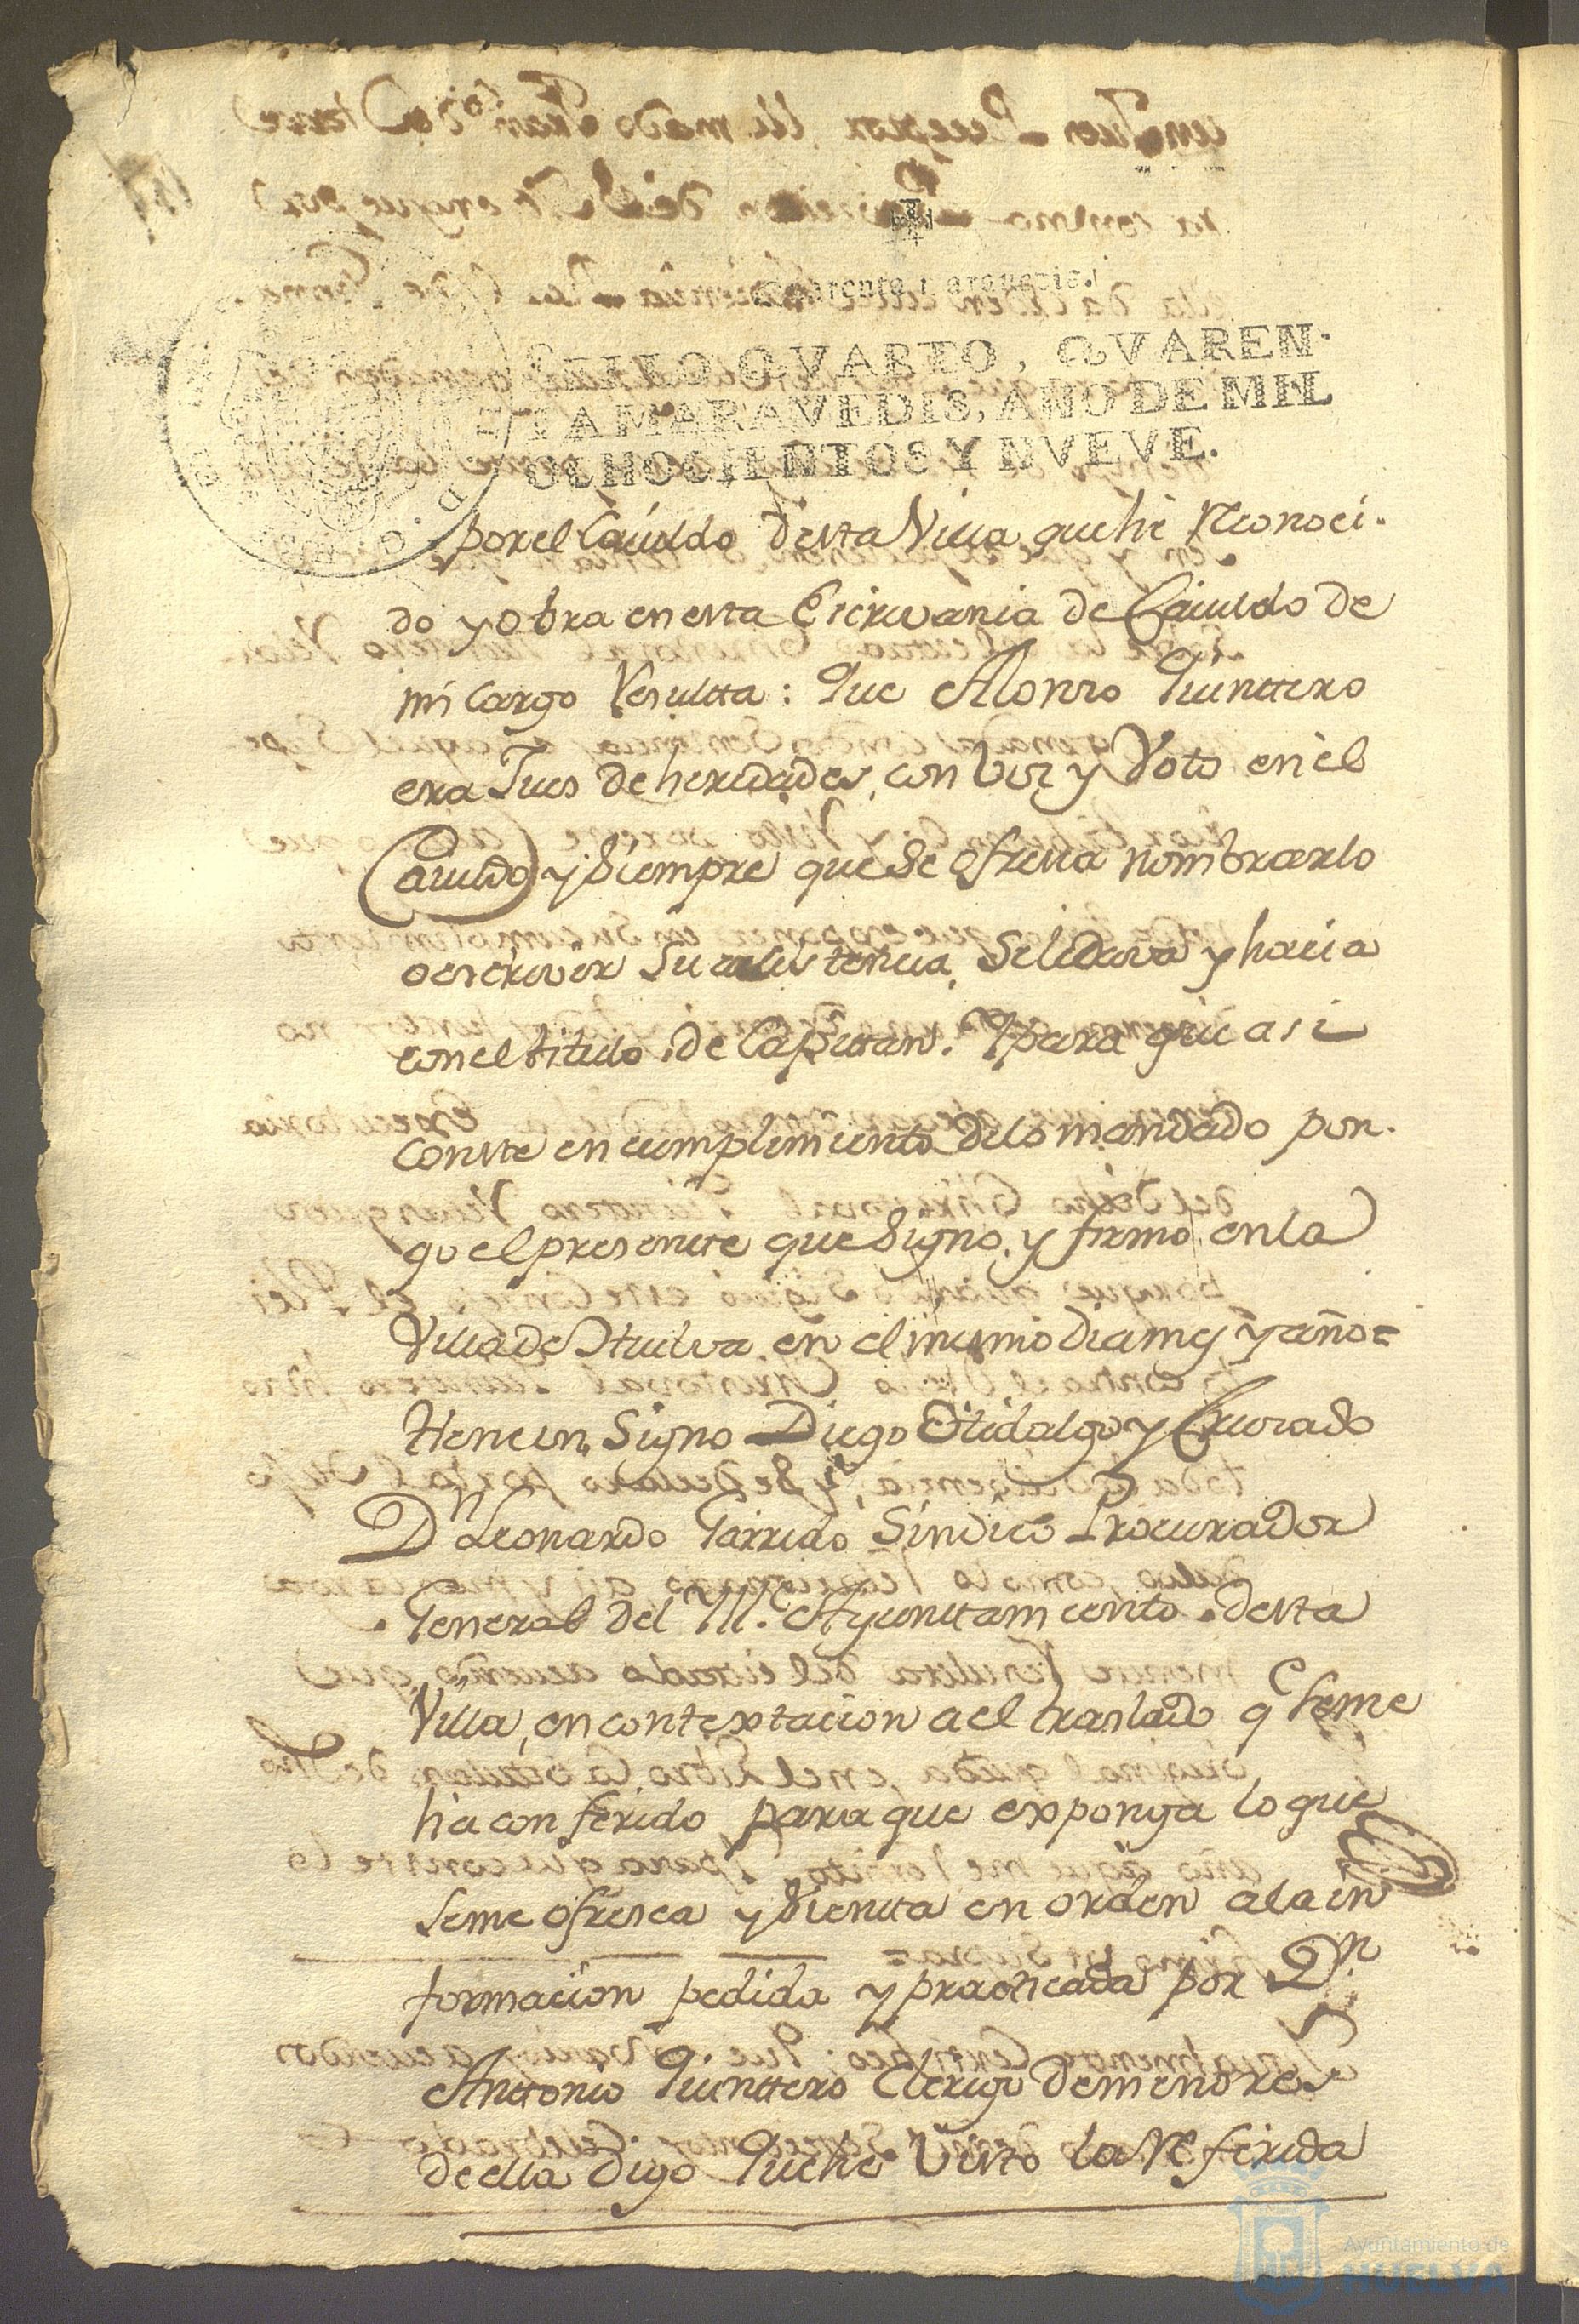 Quarenta maravedis.
SELLO QVARTO, QVAREN-
TA MARAVEDIS, AÑO DE MIL
OCHOCIENTOS Y NVEVE.
por el Cavildo desta Villa que hé reconoci-
do y obra en esta Escrivania de Cavildo de
mi cargo Resultta: Que Alonso Quinttero
era Jues de heredades, con Voz y Voto en el
Cavildo y siempre que se ofresia nombrarlo
o escrivir su asistencia, se le dava y hacia
con el titulo de Capittan. Y para que asi
conste en cumplimiento de lo mandado pon-
go el presentte que signo, y firmo en la
Villa de Huelva en el mismo dia mes y año=
Hene un signo Diego Hidalgo y Jurado
Dn Leonardo Garrido Sindico Procurador
General del Ill.e Ayunttamiento desta
Villa, en contextacion a el traslado qe seme
ha conferido para que exponga lo que
seme ofresca y sientta en orden a la in
formacion pedida y practicada por Dn.
Anttonio Quinttero Clerigo de menores
de ella Digo Que hé Visto la Referida
Ayuntamiento de
HUELVA